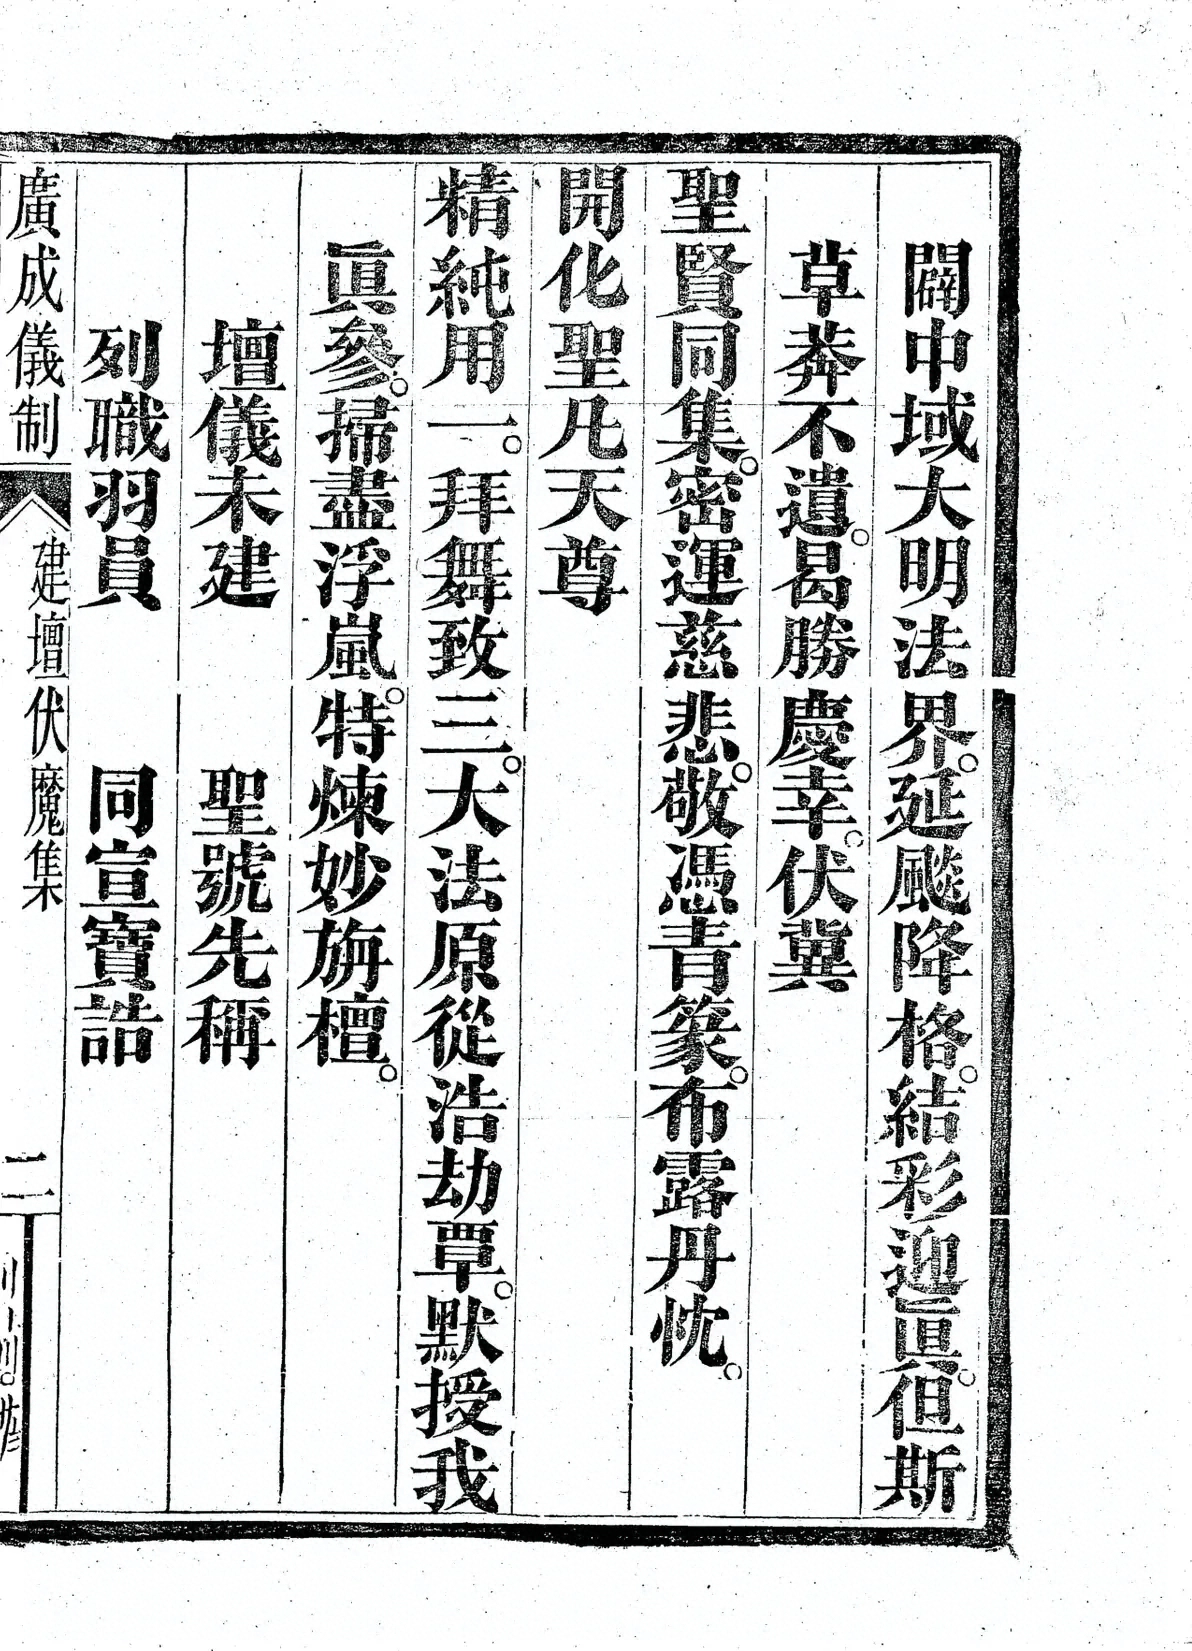 闢中域大明法界。延飈降格。結彩迎眞。但斯
草莽不遺。曷勝慶幸。伏冀
聖賢同集。密運慈悲。敬憑青篆。布露丹忱。
開化聖凡天尊
精純用一。拜舞致三。大法原從浩劫覃。默授我
眞參。掃盡浮嵐。特煉妙旃檀。
壇儀未建　聖號先稱
列職羽員　同宣寶誥
廣成儀制　建壇伏魔集　二